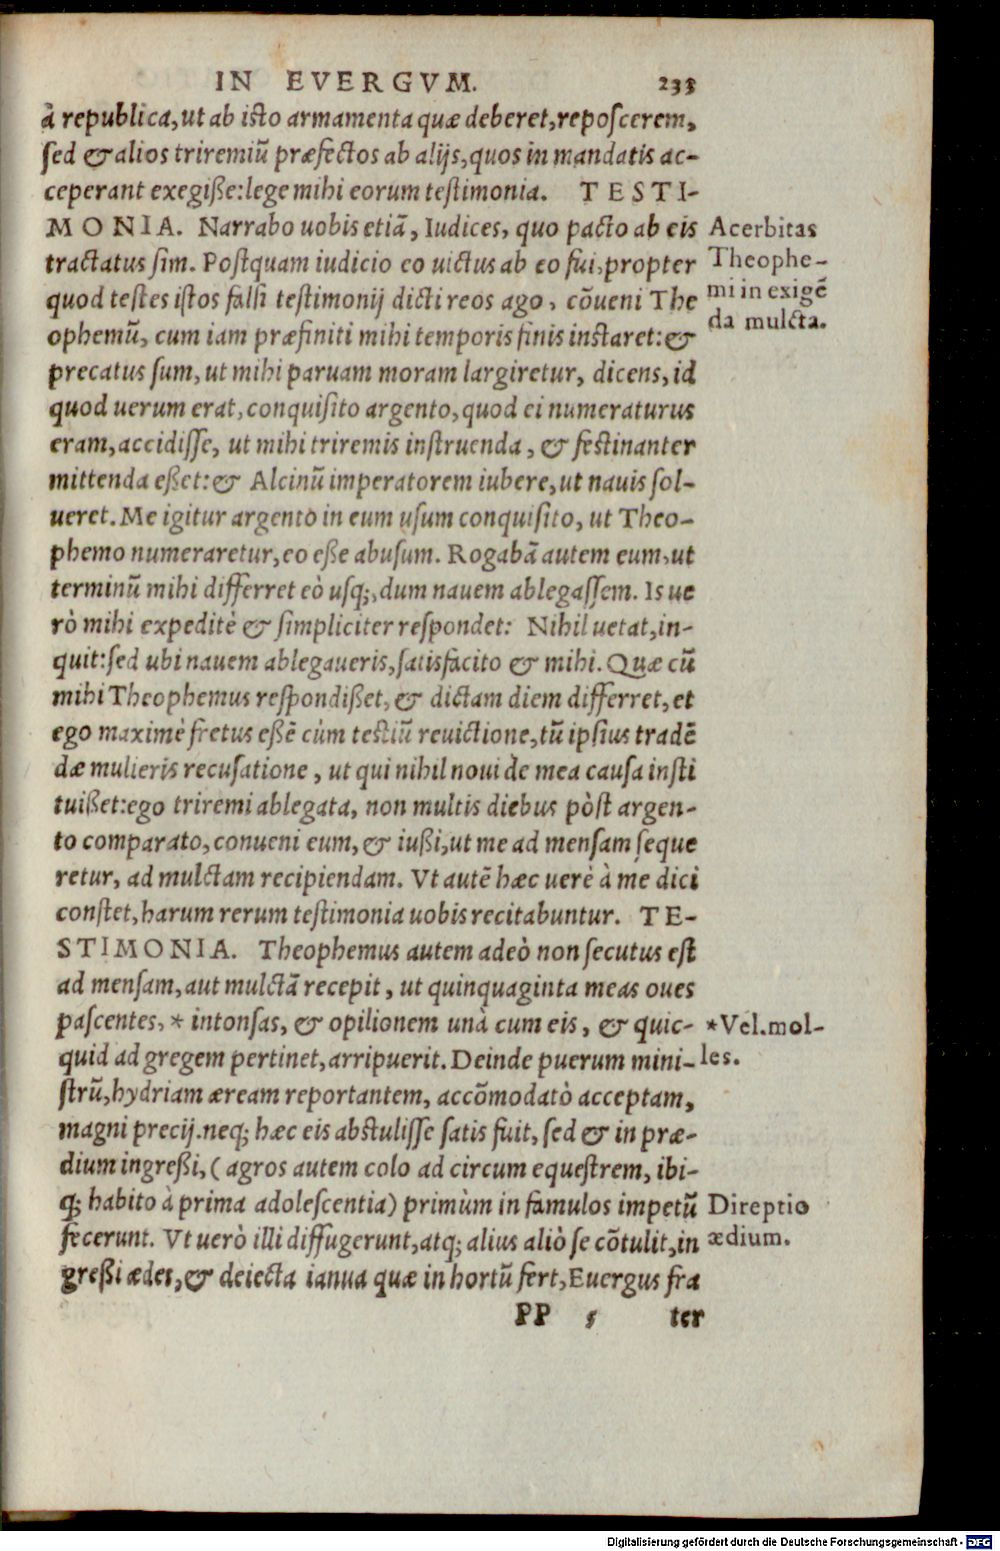 IN EVERGVM. 233
à republica, ut ab isto armamenta quæ deberet, reposcerem,
sed & alios triremiũ præfectos ab alijs, quos in mandatis ac-
ceperant exegiße: lege mihi eorum testimonia. TESTI-
MONIA. Narrabo uobis etiã, Iudices, quo pacto ab eis
tractatus sim. Postquam iudicio eo uictus ab eo fui, propter
quod testes istos falsi testimonij dicti reos ago, cõueni The
ophemũ, cum iam præfiniti mihi temporis finis instaret: &
precatus sum, ut mihi paruam moram largiretur, dicens, id
quod uerum erat, conquisito argento, quod ei numeraturus
eram, accidisse, ut mihi triremis instruenda, & festinanter
mittenda eßet: & Alcinũ imperatorem iubere, ut nauis sol-
ueret. Me igitur argento in eum usum conquisito, ut Theo-
phemo numeraretur, eo eße abusum. Rogabã autem eum, ut
terminũ mihi differret eò usq;, dum nauem ablegassem. Is ue
rò mihi expeditè & simpliciter respondet: Nihil uetat, in-
quit: sed ubi nauem ablegaueris, satisfacito & mihi. Quæ cũ
mihi Theophemus respondißet, & dictam diem differret, et
ego maximè fretus eßẽ cùm testiũ reuictione, tũ ipsius tradẽ
dæ mulieris recusatione, ut qui nihil noui de mea causa insti
tuißet: ego triremi ablegata, non multis diebus pòst argen-
to comparato, conueni eum, & iußi, ut me ad mensam seque
retur, ad mulctam recipiendam. Vt autẽ hæc uerè à me dici
constet, harum rerum testimonia uobis recitabuntur. TE-
STIMONIA. Theophemus autem adeò non secutus est
ad mensam, aut mulctã recepit, ut quinquaginta meas oues
pascentes, * intonsas, & opilionem unà cum eis, & quic-
quid ad gregem pertinet, arripuerit. Deinde puerum mini-
strũ, hydriam æream reportantem, accõmodatò acceptam,
magni precij. neq; hæc eis abstulisse satis fuit, sed & in præ-
dium ingreßi, (agros autem colo ad circum equestrem, ibi-
q; habito à prima adolescentia) primùm in famulos impetũ
fecerunt. Vt uerò illi diffugerunt, atq; alius aliò se cõtulit, in
greßi ædes, & deiecta ianua quæ in hortũ fert, Euergus fra
PP 5 ter
Acerbitas
Theophe-
mi in exigẽ
da mulcta.
*Vel. mol-
les.
Direptio
ædium.
Digitalisierung gefördert durch die Deutsche Forschungsgemeinschaft - DFG